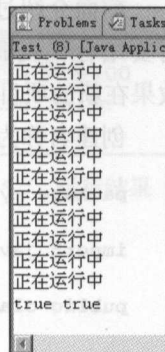 Problems Tasks
Test (8) [Java Applic
正在运行中
正在运行中
正在运行中
正在运行中
正在运行中
正在运行中
正在运行中
正在运行中
正在运行中
true true